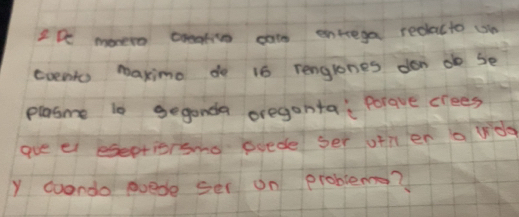 2 De manera creativa cada entrega redacto un
cuento maximo de 16 renglones don do se
plasme la segunda pregonta: Porque crees
que el eseptisismo puede ser util en la vida
y cuando puede ser un problema?